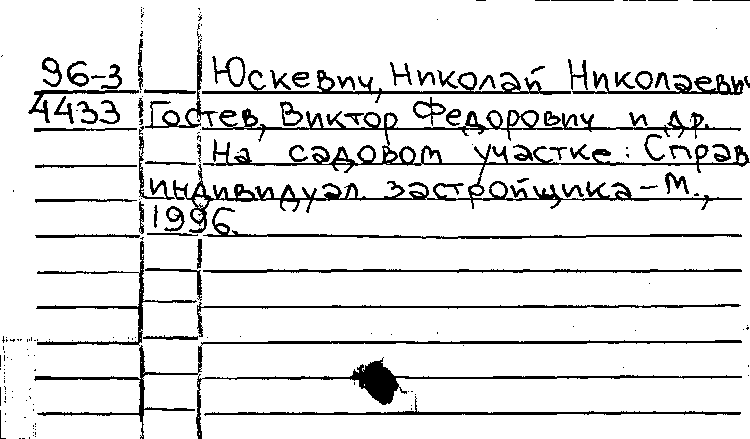 96-3 Юскевич, Николай Николаевич
4433 Гостев, Виктор Федорович и др.
На садовом участке: Справ
индивидуал. застройщика-М.,
1996.